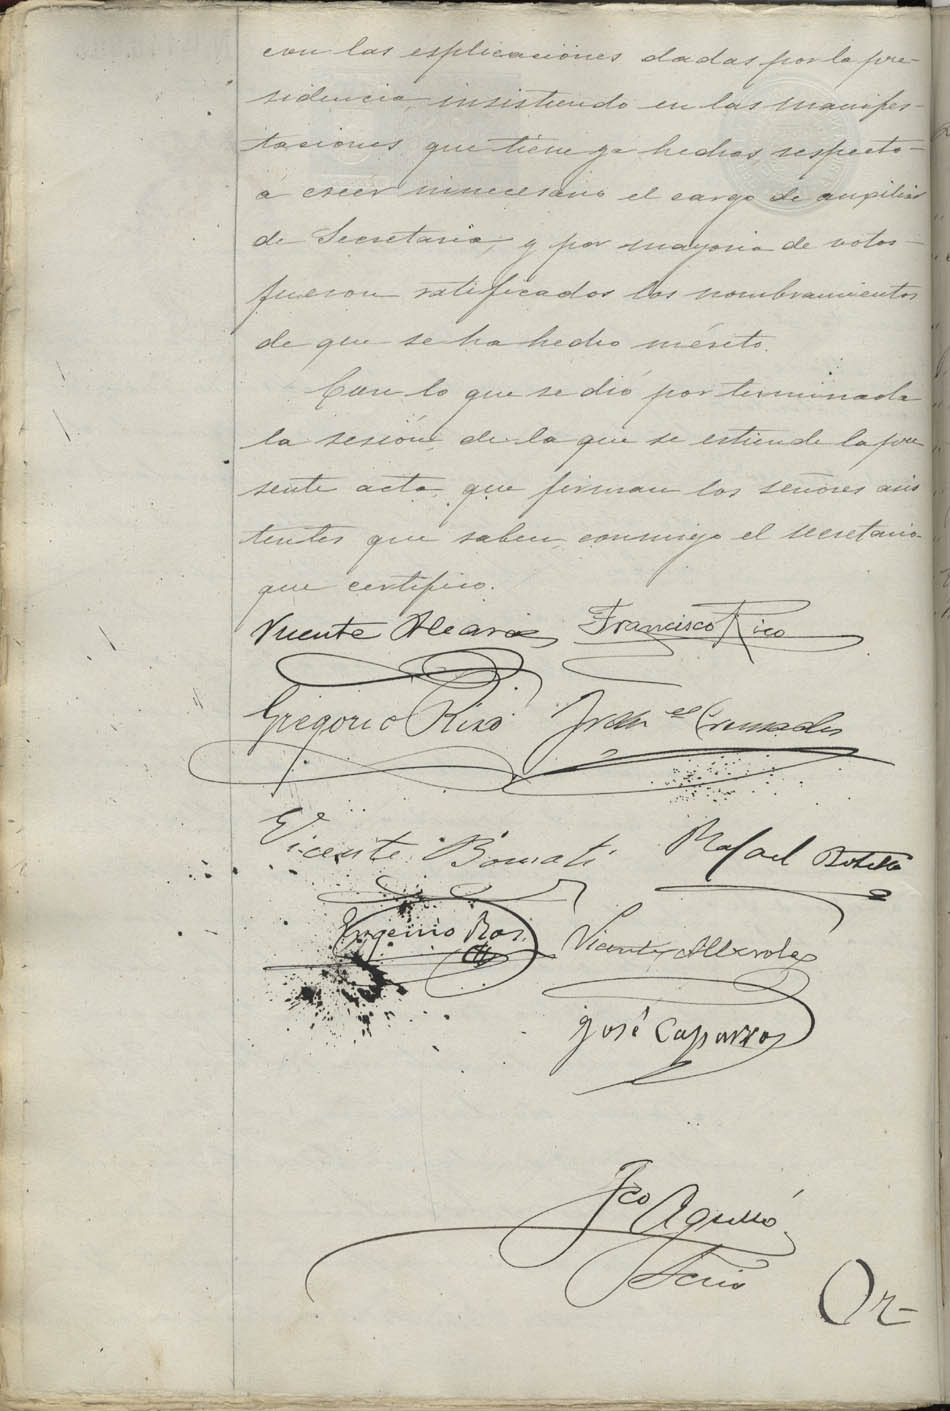 con las esplicaciones dadas por la pre-
sidencia, insistiendo en las manifes-
taciones que tiene ya hechas respecto
á creer innecesario el cargo de auxiliar
de Secretaria, y por mayoria de votos
fueron ratificados los nombramientos
de que se ha hecho mérito.
Con lo que se dió por terminada
la sesión, de la que se estiende la pre
sente acta, que firman los señores asis
tentes que saben, conmigo el secretario
que certifico.
Vicente Alcaraz Francisco Rico
Gregorio Rizo
Vicente Bonmati Rafael Botella
Eugenio Ros Vicente Alberola
José Caparros
Fco Agulló
Srio
Or-